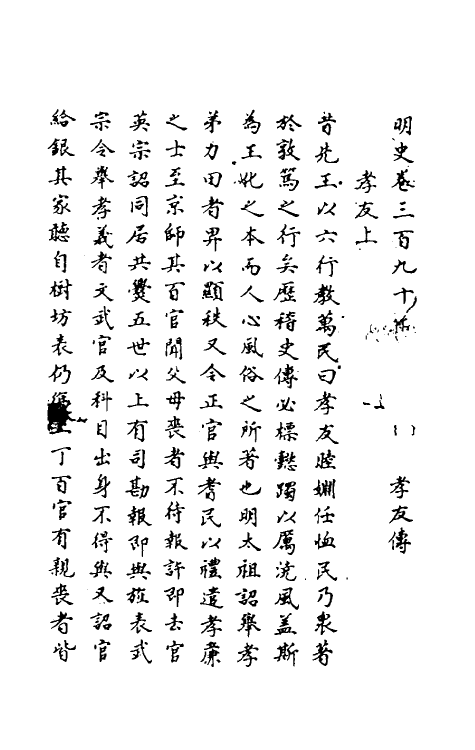 明史卷三百九十 孝友傳
孝友上
昔先王以六行教萬民曰孝友睦婣任恤民乃衆著
於敦篤之行矣歷稽史傳必標懿躅以厲流風盖斯
為王化之本而人心風俗之所著也明太祖詔舉孝
弟力田者畀以顯秩又令正官與耆民以禮遣孝廉
之士至京師其百官聞父母喪者不待報許即去官
英宗詔同居共爨五世以上有司勘報即與旌表武
宗令舉孝義者文武官及科目出身不得與又詔官
給銀其家聽自樹坊表仍 丁百官有親喪者皆